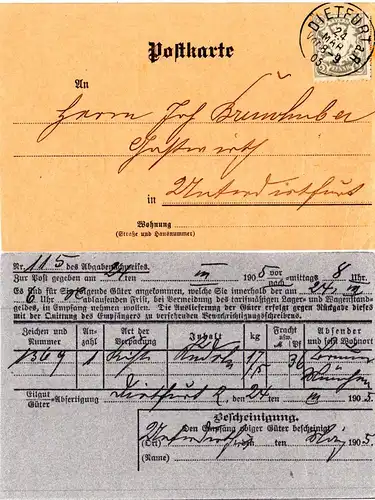 DIETFURT a.R
24
MAR
Vor. 8-9
05
Postkarte
An
Herrn Joh
Gastwirth
in Unterdietfurt
Wohnung
(Straße und Hausnummer)
Nr. 115 des Abgabenachweises.
Zur Post gegeben am 24 ten III 1905 vor nachmittags 8 Uhr.
Es sind für Sie folgende Güter angekommen, welche Sie innerhalb der am 24. III
6 Uhr ablaufenden Frist, bei Vermeidung des tarifmäßigen Lager- und Wagenstand-
geldes, in Empfang nehmen wollen. Die Auslieferung der Güter erfolgt gegen Rückgabe dieses
mit der Quittung des Empfängers zu versehenden Benachrichtigungsschreibens.
Zeichen und Nummer An-zahl Art der Verpackung Inhalt kg Fracht M Pf Absender und sein Wohnort
1369 1 Kiste Nudeln 17 36
München
Eilgut Güter Abfertigung Dietfurt 24 ten III 1905
Bescheinigung.
Den Empfang obiger Güter bescheinigt
(Ort) ten März 1905
(Name)